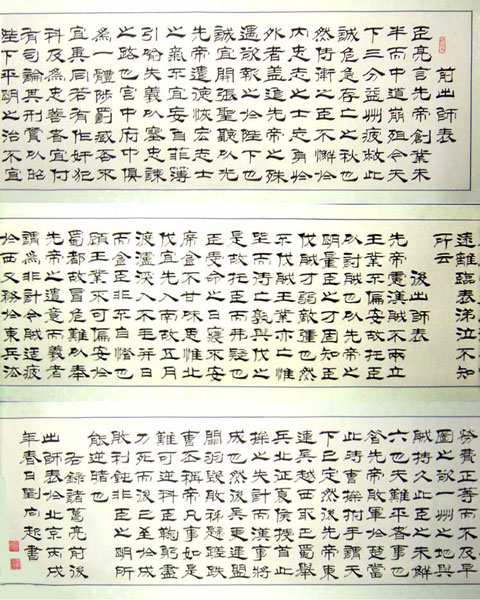 前出師表
臣亮言先帝創業未
半而中道崩殂今天
下三分益州疲敝此
誠危急存亡之秋也
然侍衛之臣不懈於
內忠志之士忘身於
外者蓋追先帝之殊
遇欲報之於陛下也
誠宜開張聖聽以光
先帝遺德恢宏志士
之氣不宜妄自菲薄
引喻失義以塞忠諫
之路也宮中府中俱
為一體陟罰臧否不
宜異同若有作奸犯
科及為忠善者宜付
有司論其刑賞以昭
陛下平明之治不宜
遠離臨表涕泣不知
所云
後出師表
先帝慮漢賊不兩立
王業不偏安故托臣
以討賊也以先帝之
明量臣之才固知臣
伐賊才弱敵彊也然
不伐賊王業亦亡惟
坐而待亡孰與伐之
是故托臣而弗疑也
臣受命之日寢不安
席食不甘味思惟北
伐宜先入南故五月
渡瀘深入不毛并日
而食臣非不自惜也
顧王業不可偏安於
蜀都故冒危難以奉
先帝之遺意而議者
謂為非計今賊適疲
於西又務於東兵法
勞費正等而不及早
圖之欲一州之地與
賊持久此臣之未解
六也夫難平者事也
昔先帝敗軍於楚當
此時曹操拊手謂天
下已定然後先帝東
連吳越西取巴蜀舉
兵北征夏侯授首此
操之失計而漢事將
成也然後吳更違盟
關羽毀敗秭歸蹉跌
曹丕稱帝凡事如是
難可逆料臣鞠躬盡
力死而後已至於成
敗利鈍非臣之明所
能逆睹也
右錄諸葛亮前後
出師表於北京丙戌
年春日劉向起書